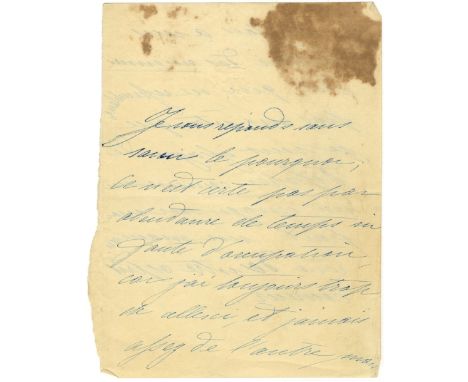 Je vous réponds sans
savoir le pourquoi,
ce n'est certe pas par
abondance de temps ni
faute d'occupation,
car j'ai toujours trop
de celleci, et jamais
assez de l'autre, mais